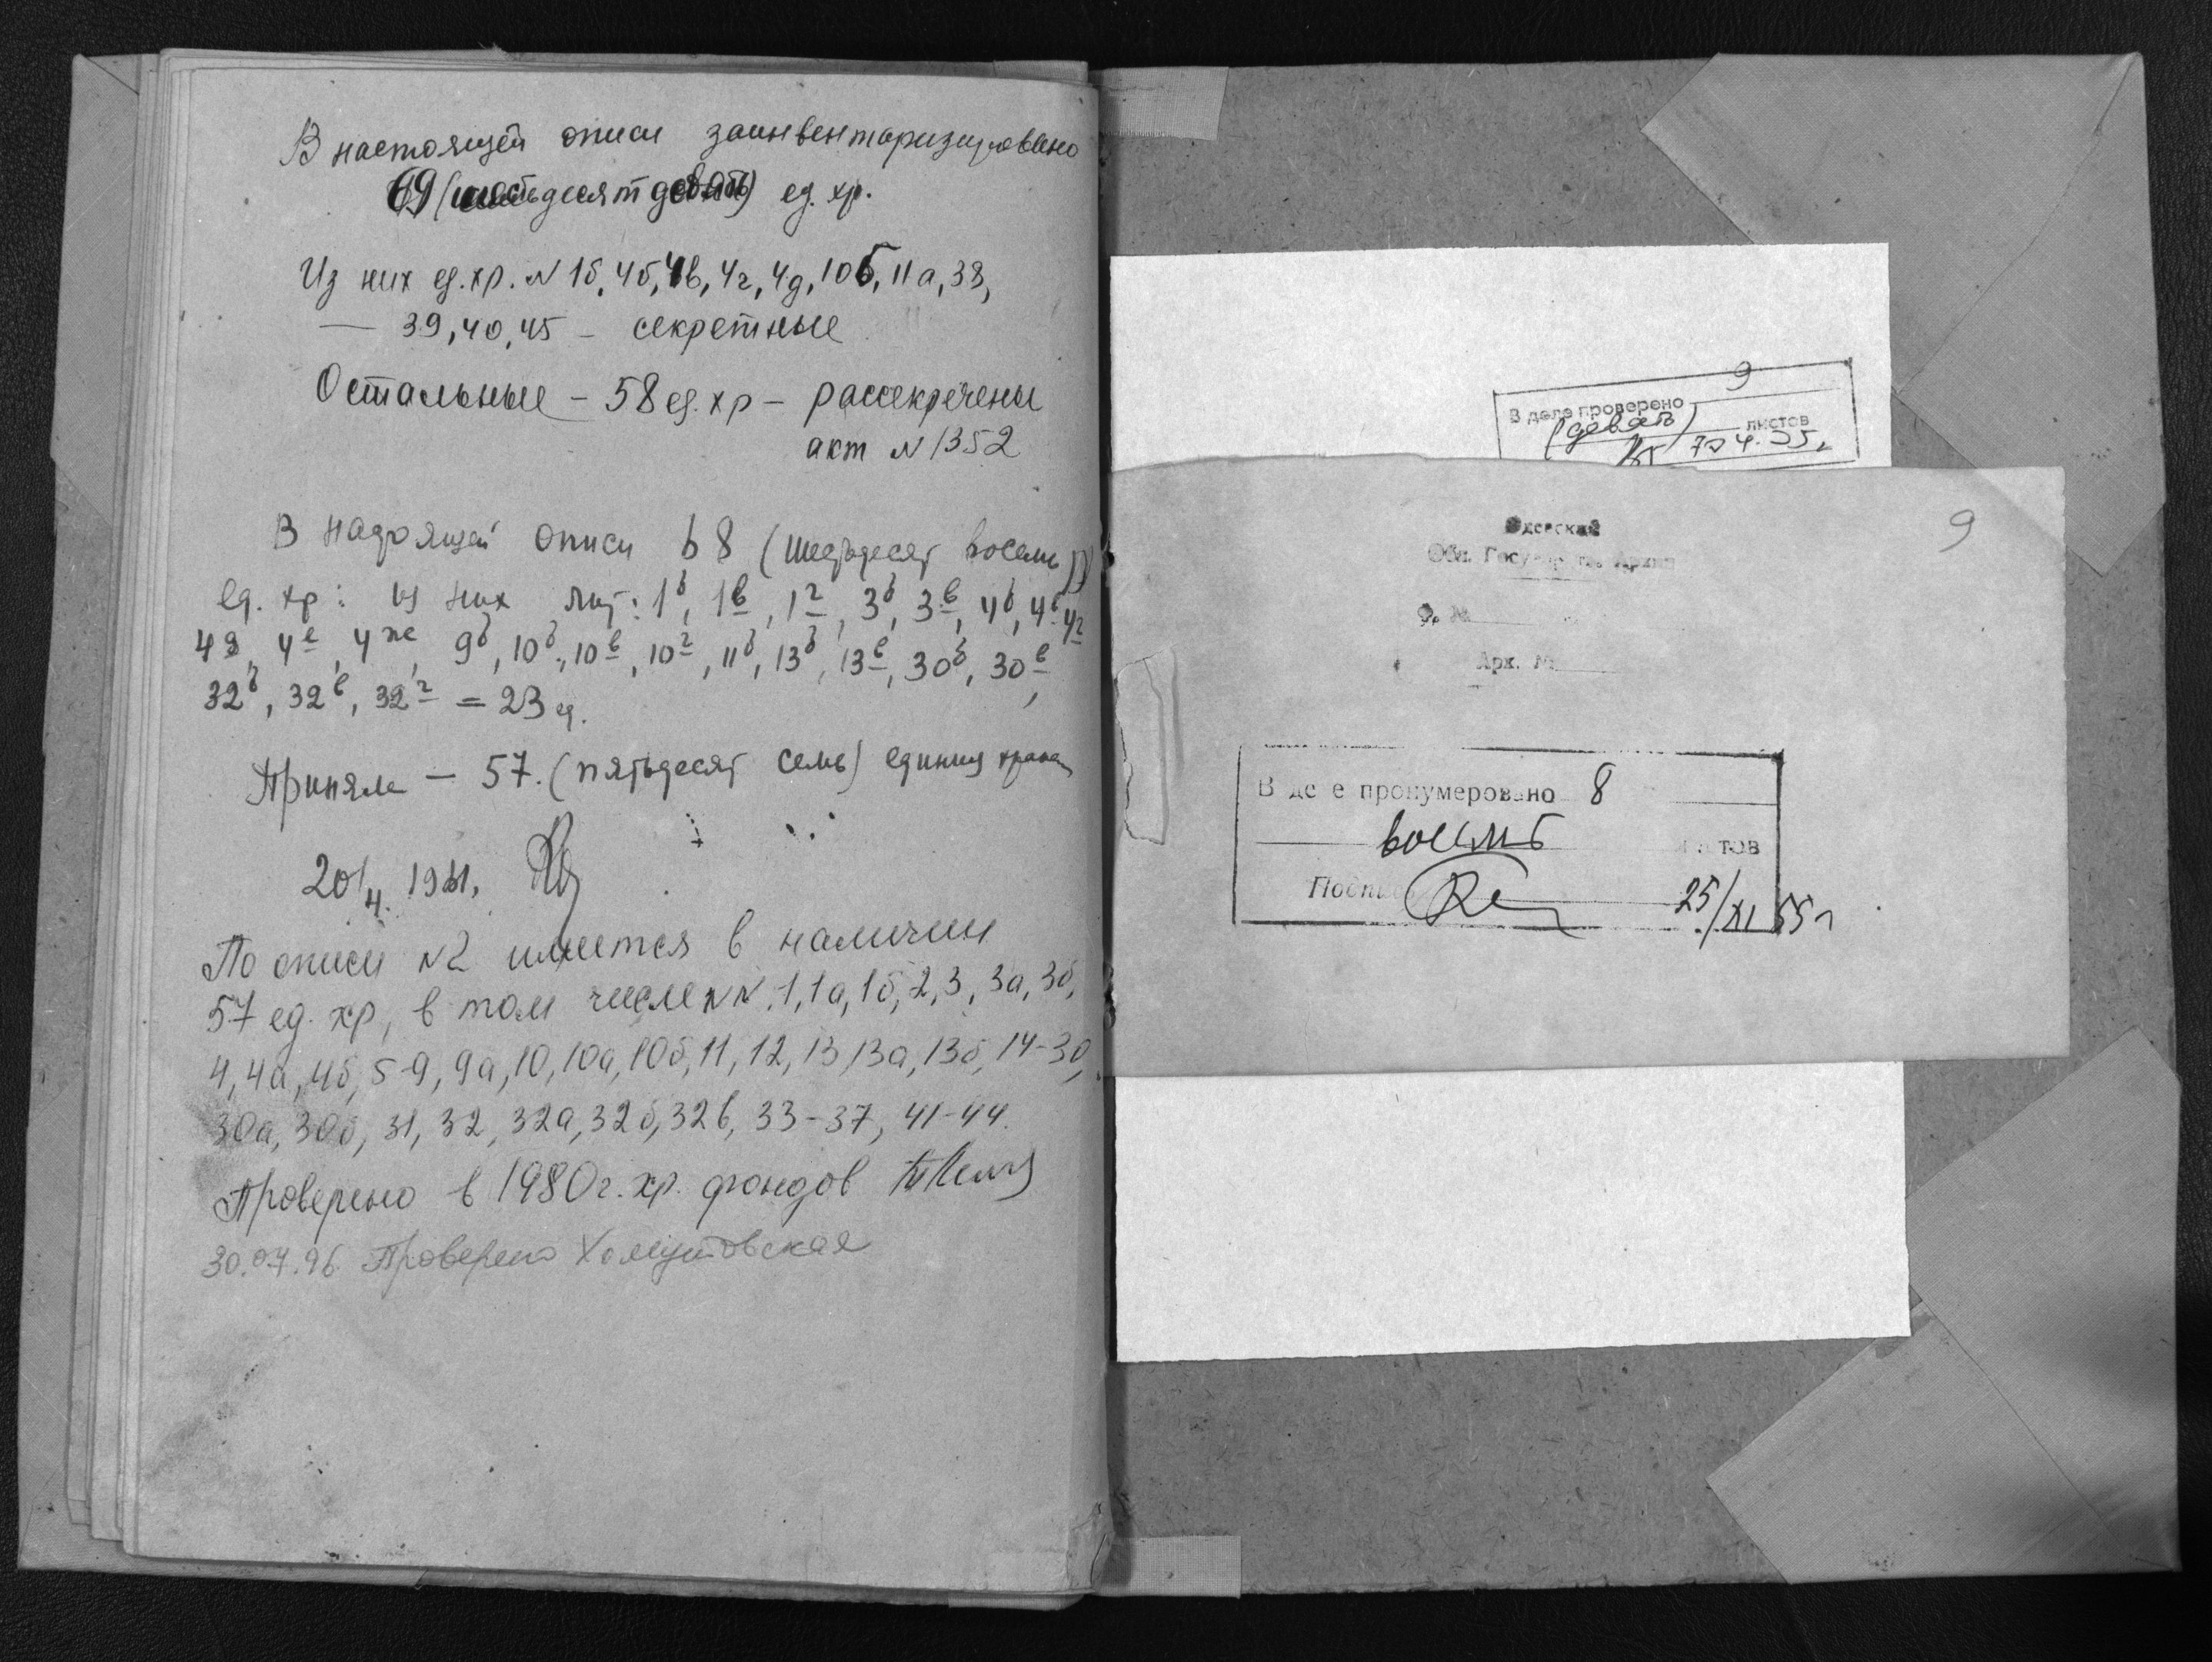 В настоящей описи заинвентаризировано
69 (шестьдесят девять) ед. хр.
Из них ед. хр. N 1б, 4б, 4в, 4г, 4д, 10б, 11а, 38,
— 39, 40, 45 – секретные
Остальные – 58 ед. хр – рассекречены
акт N 1352
В надоящей описи 68 (шестьдесят восемь)
ед. хр: из них лит: 1б, 1в, 1г, 3б, 3в, 4б, 4в, 4г
4д, 4е, 4же, 9б, 10б, 10в, 10г, 11б, 13б, 13в, 30б, 30в,
32б, 32в, 32г = 23 ед.
Приняла – 57. (пятьдесят семь) единиц хранен
20/4.
По описи N2 имеется в наличии
57 ед. хр, в том числе NN. 1, 1а, 1б, 2, 3, 3а, 3б,
4, 4а, 4б, 5-9, 9а, 10, 10а, 10б, 11, 12, 13, 13а, 13б, 14-30,
30а, 30б, 31, 32, 32а, 32б, 32в, 33-37, 41-44.
Проверено в 1980г. хр. фондов
30.07.96 Проверено Хомутовская
9
В деле проверено
(девять) листов
9
Обл. Государств. Архив
Арх. №
В деле пронумеровано 8
восемь листов
Подпись 25/XI 55 г